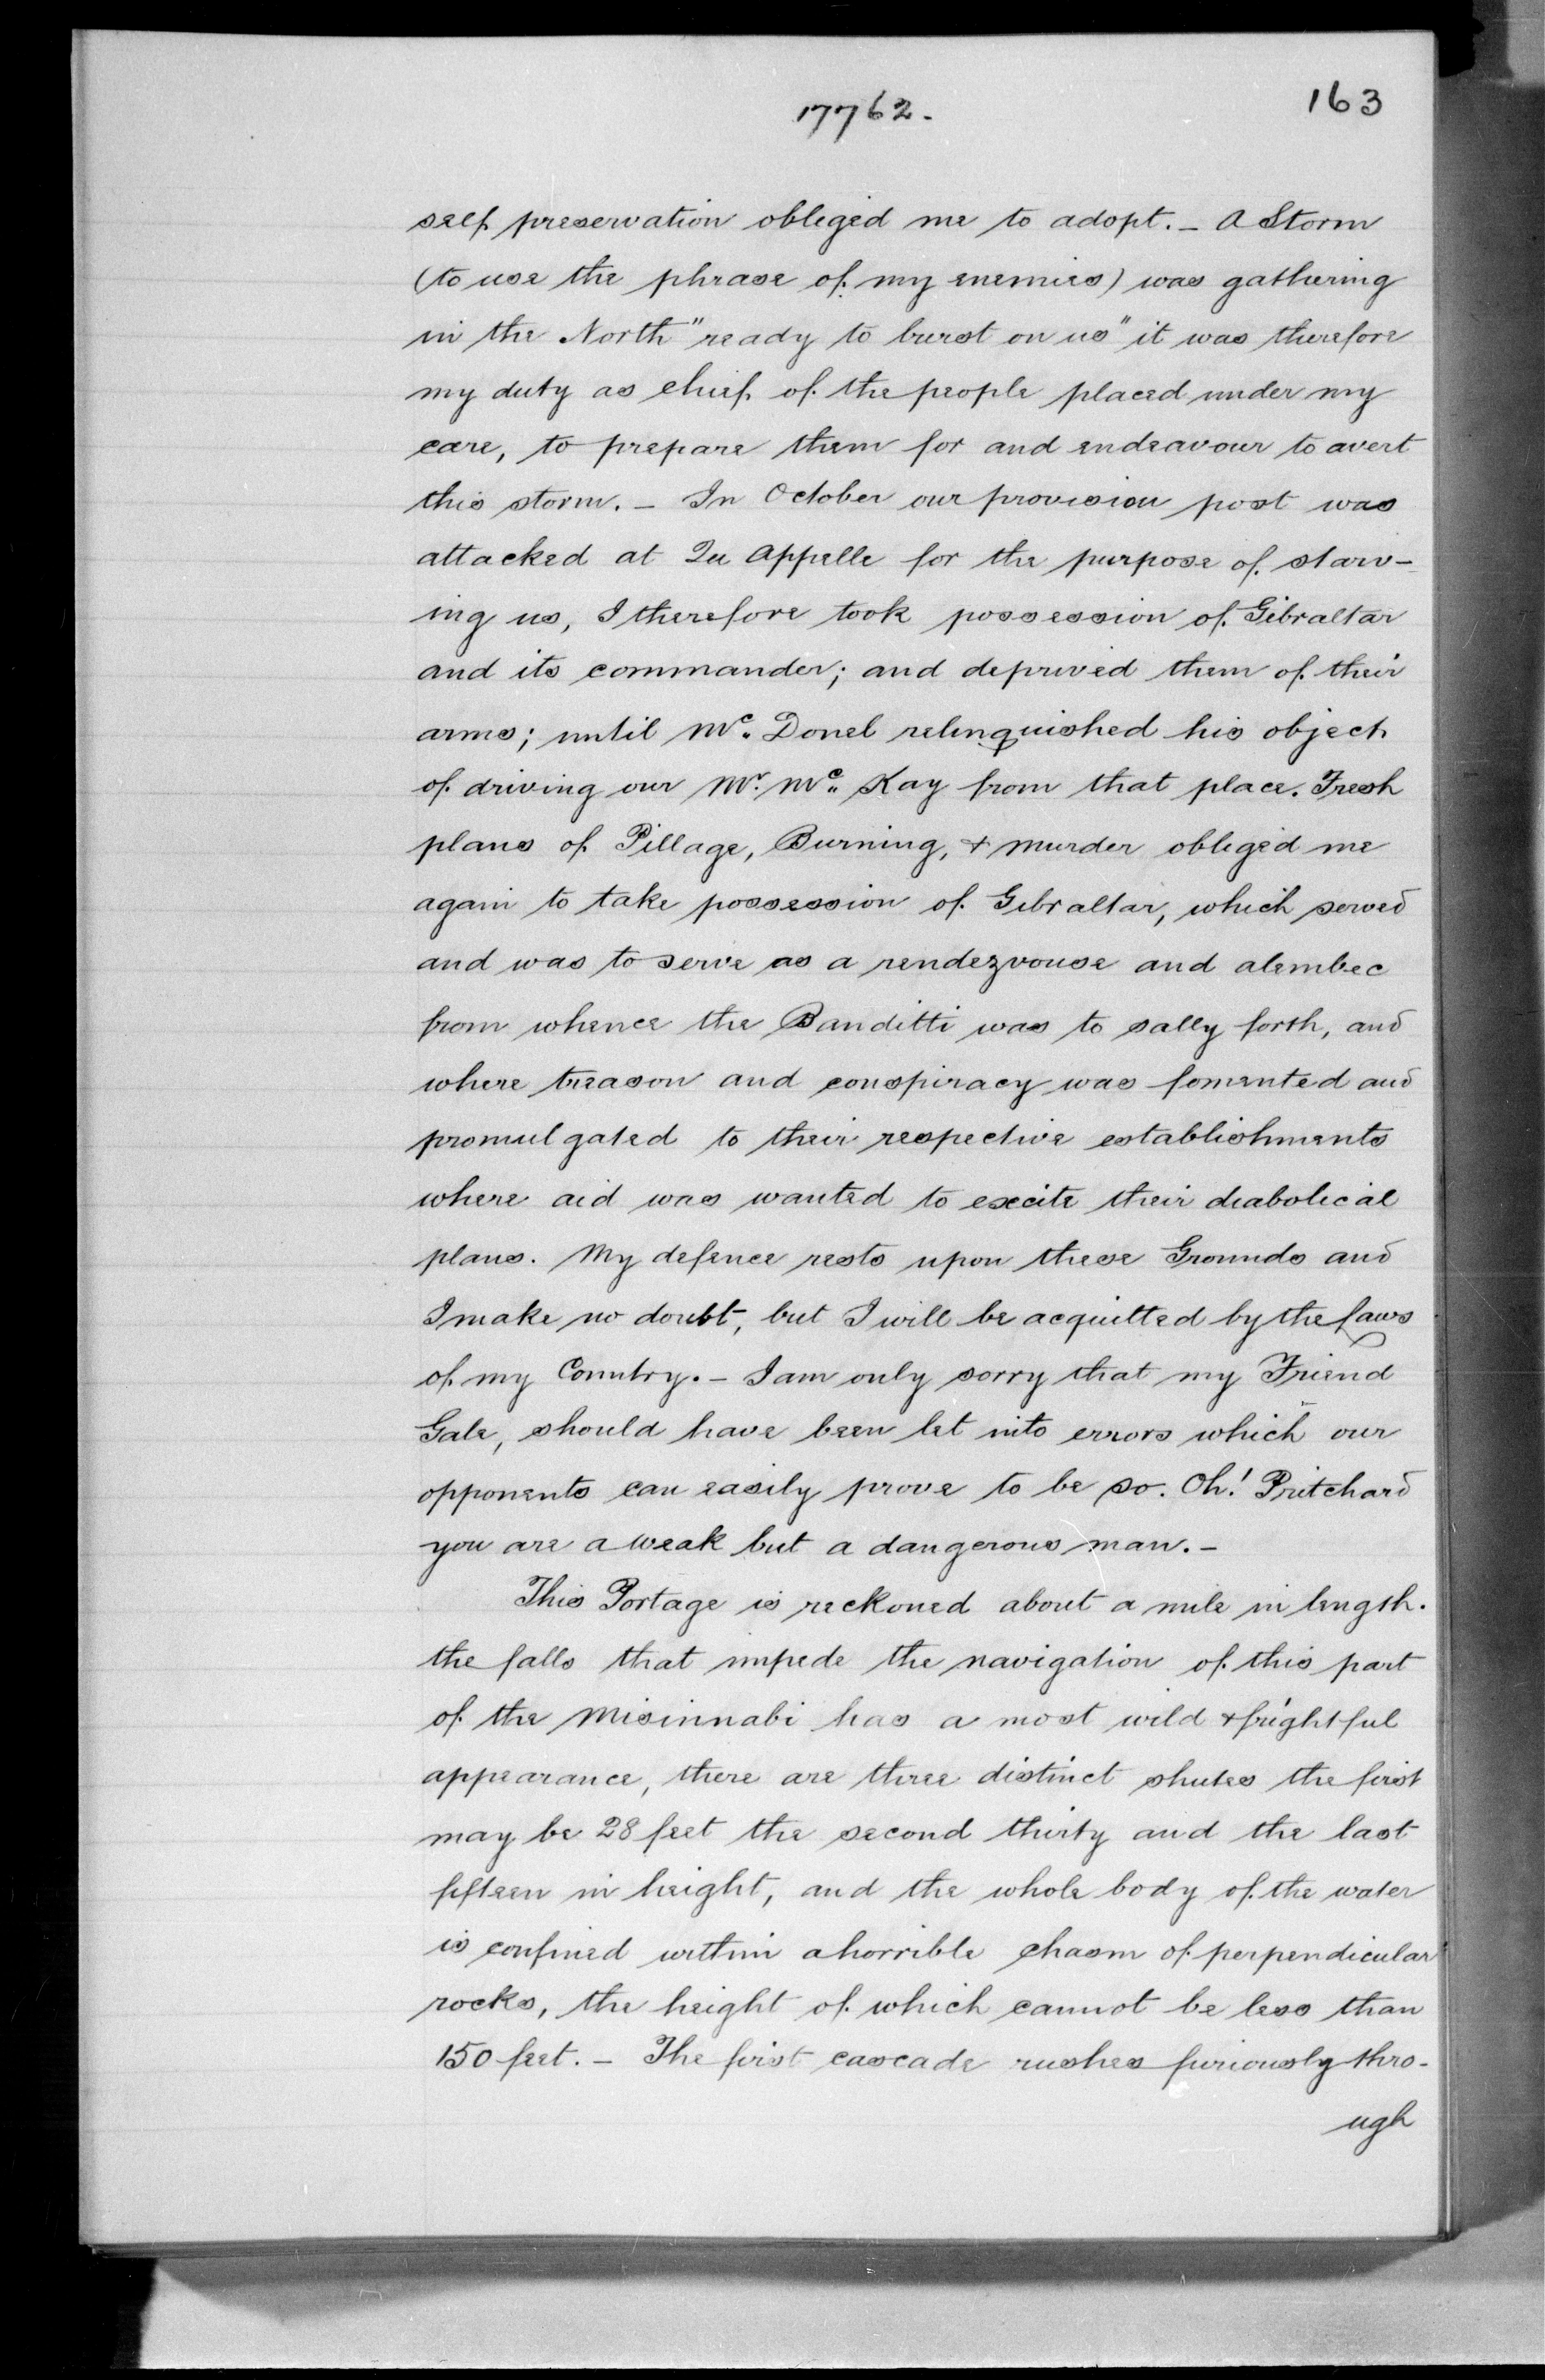 17762.
163
self preservation obliged me to adopt. - A Storm
(to use the phrase of my enemies) was gathering
in the North "ready to burst on us" it was therefore
my duty as chief of the people placed under my
care, to prepare them for and endeavour to avert
this storm. - In October our provision post was
attacked at Qu Appelle for the purpose of starv-
ing us, I therefore took possession of Gibraltar
and its commander; and deprived them of their
arms; until Mc. Donel relinquished his object
of driving our Mr. Mc. Kay from that place. Fresh
plans of Pillage, Burning, & murder obliged me
again to take possession of Gibraltar, which served
and was to serve as a rendezvouse and alembec
from whence the Banditti was to sally forth, and
where treason and conspiracy was fomented and
promulgated to their respective establishments
where aid was wanted to excite their diabolical
plans. My defence rests upon these Grounds and
I make no doubt, but I will be acquitted by the laws
of my Country. - I am only sorry that my Friend
Gale, should have been let into errors which our
opponents can easily prove to be so. Oh! Pritchard
you are a weak but a dangerous man. -
This Portage is reckoned about a mile in length.
the falls that impede the navigation of this part
of the Misinnabi has a most wild & frightful
appearance, there are three distinct shutes the first
may be 28 feet the second thirty and the last
fifteen in height, and the whole body of the water
is confined within a horrible chasm of perpendicular
rocks, the height of which cannot be less than
150 feet. - The first cascade rushes furiously thro-
ugh